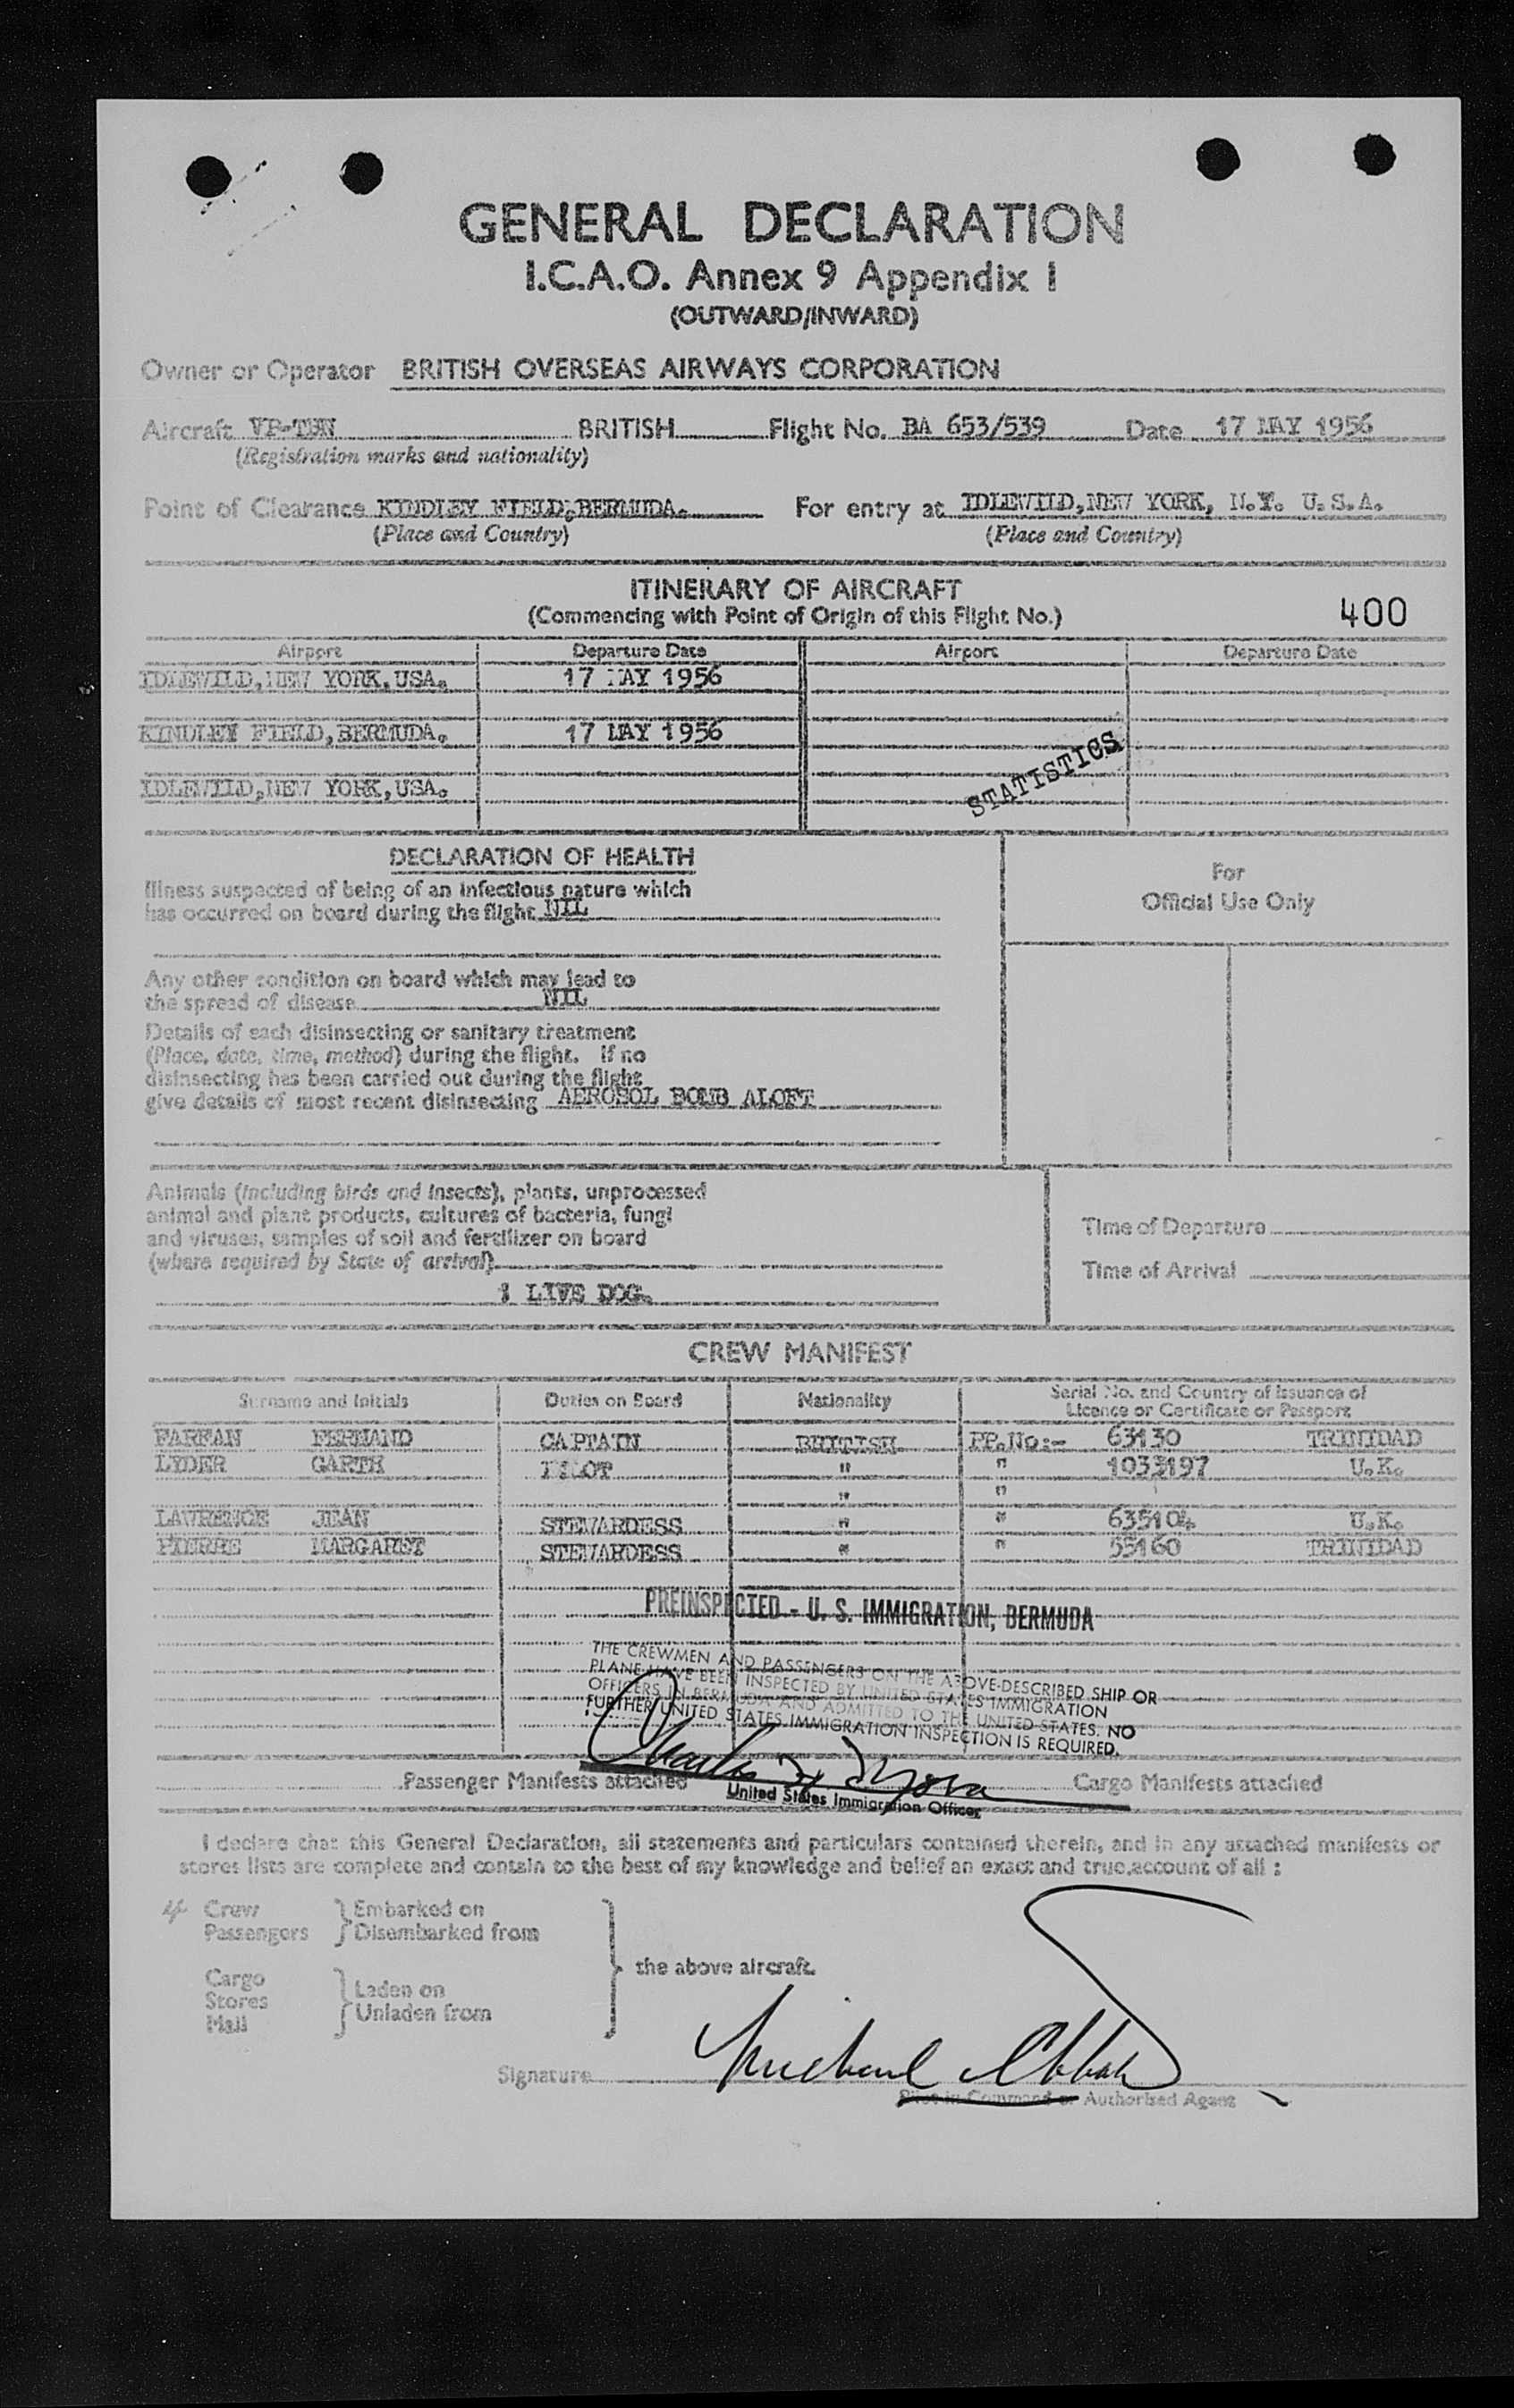 GENERAL DECLARATION
I.C.A.O. Annex 9 Appendix I
(OUTWARD/INWARD)
Owner or Operator BRITISH OVERSEAS AIRWAYS CORPORATION
Aircraft BRITISH Flight No. BA 653/539 Date 17 MAY 1956
(Registration marks and nationality)
Point of Clearance KINDLEY FIELD, BERMUDA. For entry at IDLEWILD, NEW YORK, N.Y. U.S.A.
(Place and Country) (Place and Country)
ITINERARY OF AIRCRAFT
(Commencing with Point of Origin of this Flight No.) 400
Airport Departure Date Airport Departure Date
IDLEWILD, NEW YORK, USA. 17 MAY 1956
KINDLEY FIELD, BERMUDA. 17 MAY 1956
STATISTICS
IDLEWILD, NEW YORK, USA.
DECLARATION OF HEALTH
Illness suspected of being of an infectious nature which
has occurred on board during the flight NIL
For
Official Use Only
Any other condition on board which may lead to
the spread of disease NIL
Details of each disinsecting or sanitary treatment
(Place, date, time, method) during the flight. If no
disinsecting has been carried out during the flight
give details of most recent disinsecting AEROSOL BOMB ALOFT
Animals (including birds and insects), plants, unprocessed
animal and plant products, cultures of bacteria, fungi
and viruses, samples of soil and fertilizer on board
(where required by State of arrival)
1 LIVE DOG.
Time of Departure
Time of Arrival
CREW MANIFEST
Surname and Initials Duties on Board Nationality Serial No. and Country of Issuance of
Licence or Certificate or Passport
FARFAN FERNAND CAPTAIN BRITISH PP.No:- 63130 TRINIDAD
LYDER GARTH PILOT " " 1033197 U.K.
" "
LAWRENCE JEAN STEWARDESS " " 635104 U.K.
PIERRE MARGARET STEWARDESS " " 55160 TRINIDAD
PREINSPECTED - U. S. IMMIGRATION, BERMUDA
THE CREWMEN AND PASSENGERS ON THE ABOVE-DESCRIBED SHIP OR
PLANE HAVE BEEN INSPECTED BY UNITED STATES IMMIGRATION
OFFICERS IN BERMUDA AND ADMITTED TO THE UNITED STATES. NO
FURTHER UNITED STATES IMMIGRATION INSPECTION IS REQUIRED.
Passenger Manifests attached Cargo Manifests attached
United States Immigration Officer
I declare that this General Declaration, all statements and particulars contained therein, and in any attached manifests or
stores lists are complete and contain to the best of my knowledge and belief an exact and true account of all :
4 Crew Embarked on
Passengers Disembarked from
the above aircraft.
Cargo
Stores Laden on
Mail Unladen from
Signature Michael
Pilot in Command or Authorised Agent